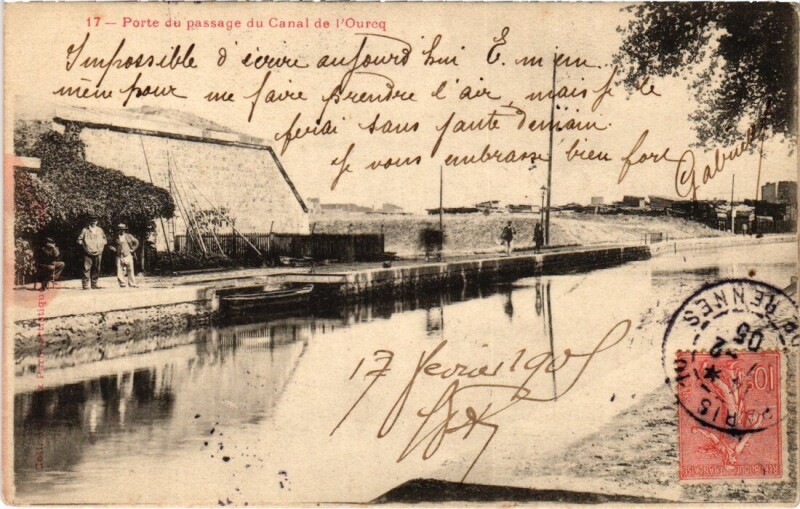 17 — Porte du passage du Canal de l'Ourcq
Impossible d'écrire aujourd'hui E. m'em
mène pour me faire prendre l'air, mais je le
ferai sans faute demain.
Je vous embrasse bien fort
Gabrielle
17 février 1905
PARIS
R. DE RENNES
2
05
10c